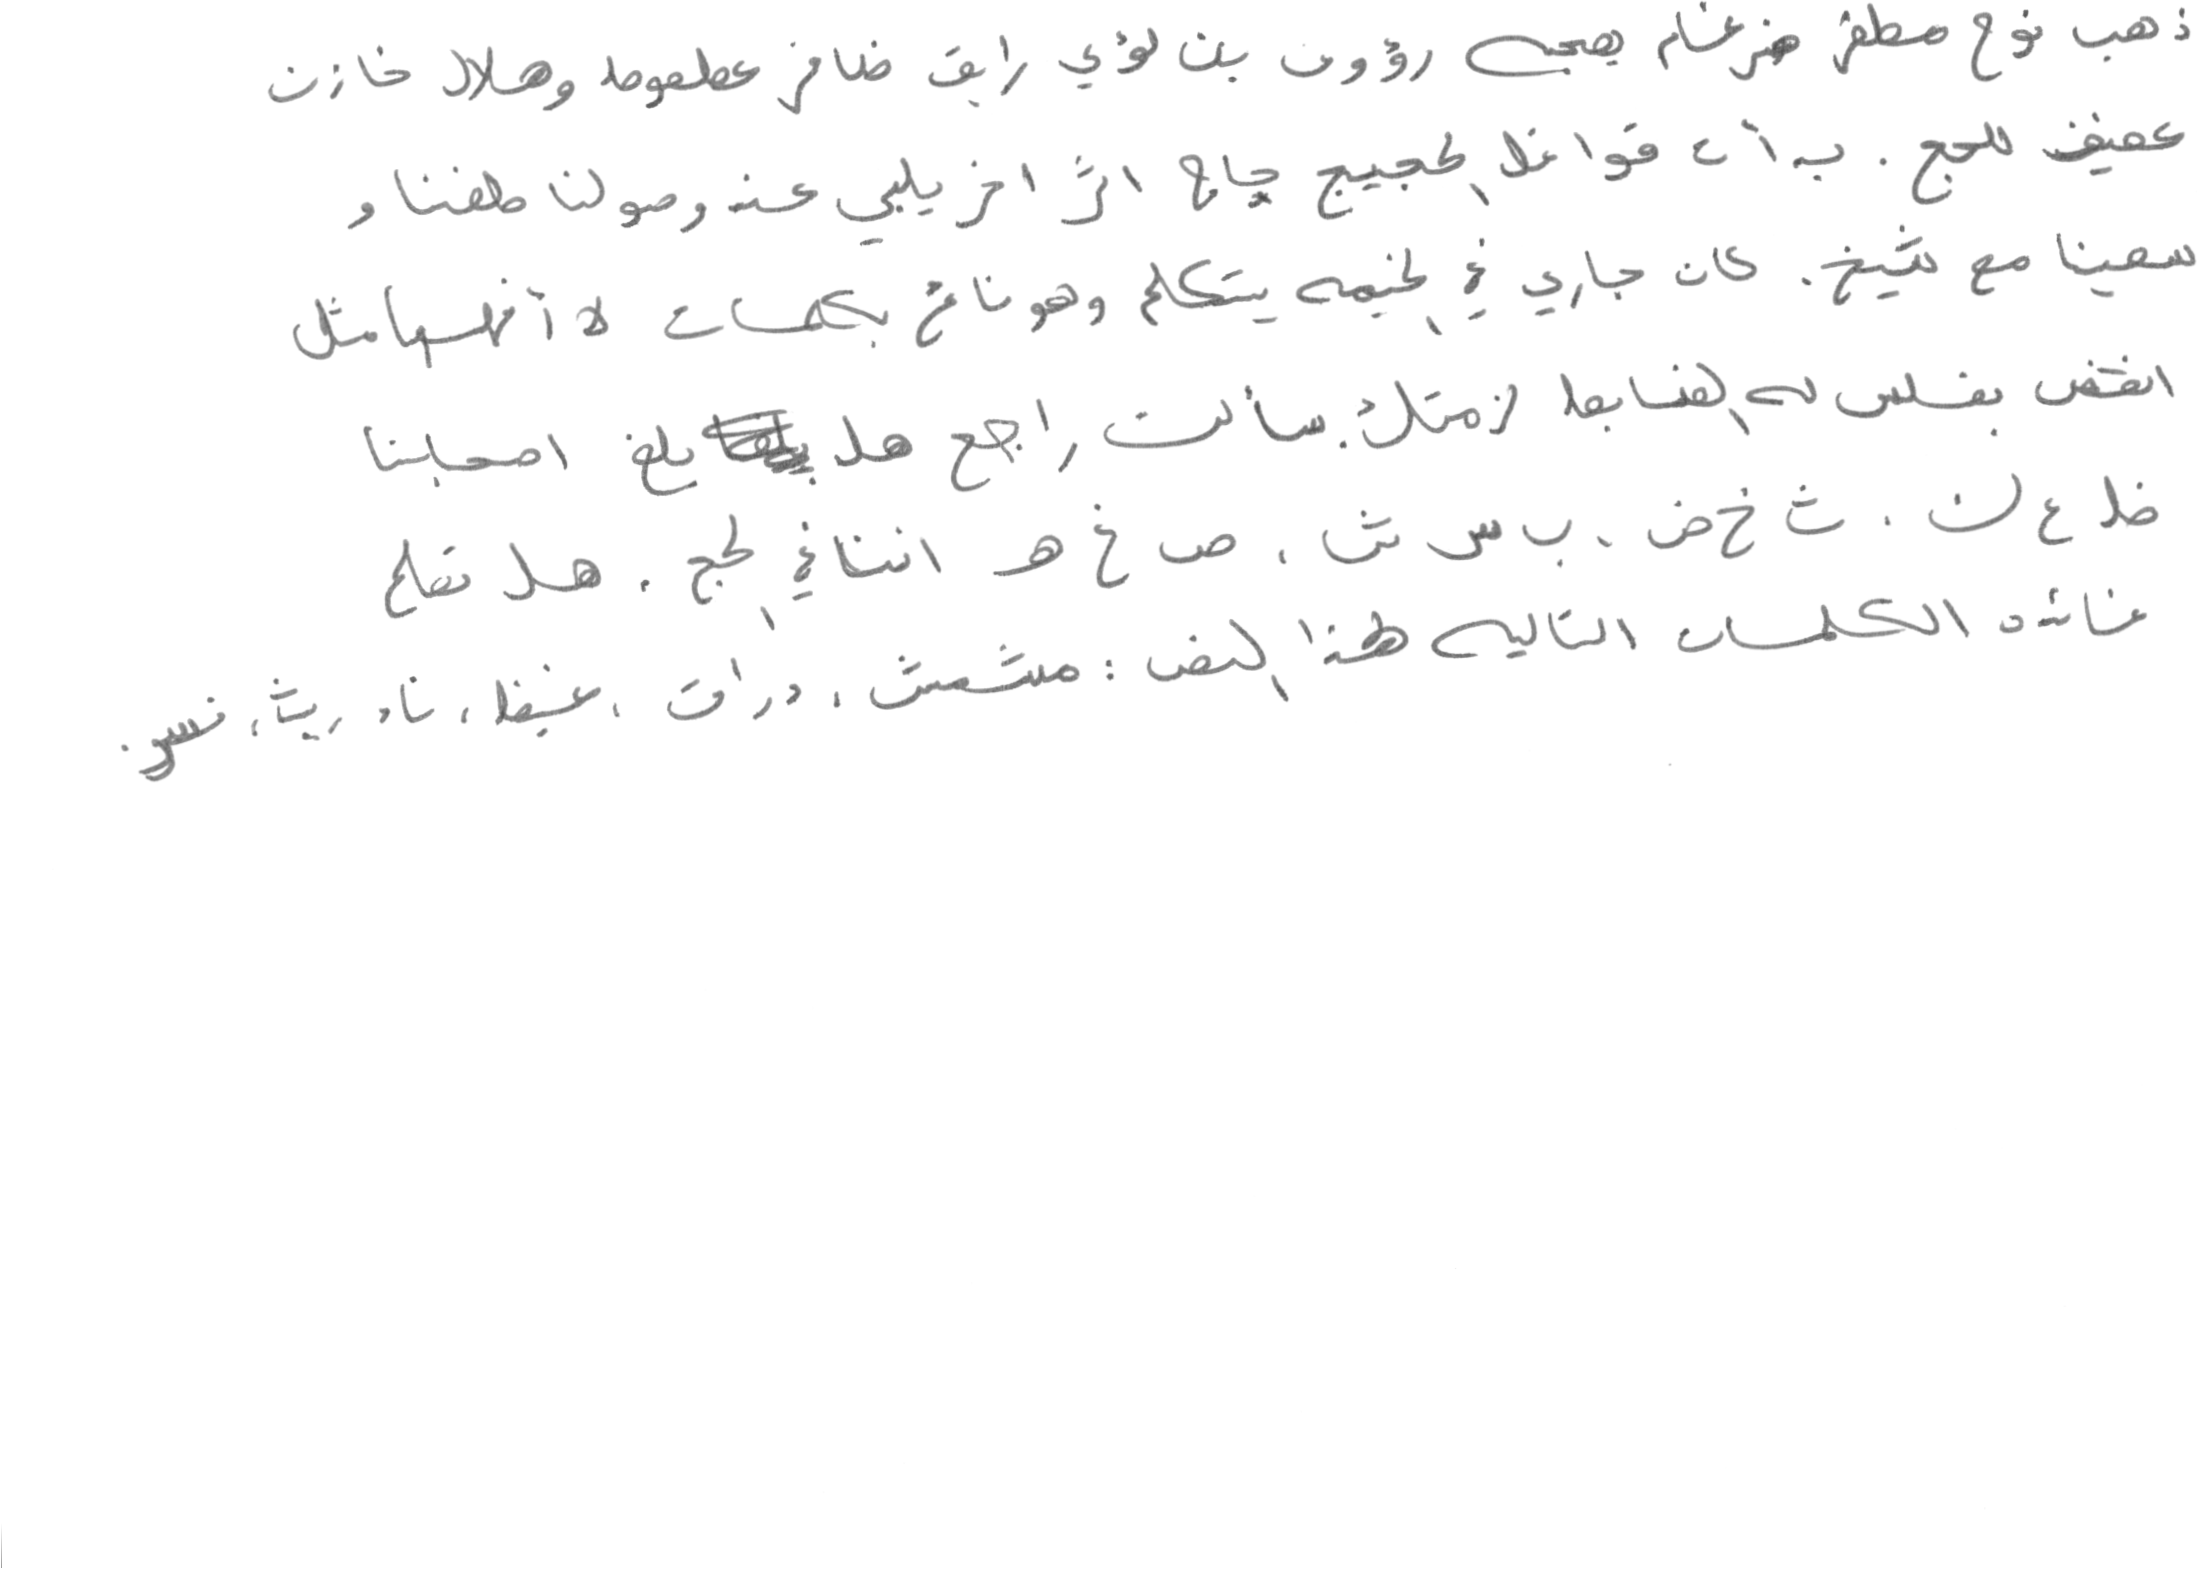 ذهب نوح مظفر ضرغام بصحبه رؤوف بن لؤي رايق ظافر عطعوط وهلال خازن
عفيف للحج . بدأت قوافل الحجيج حاج اثر اخر يلبي عند وصولنا طفنا و
سعينا مع شيخ . كان جاري في الخيمه يتكلم وهو نائم بكلمات لا أفهمها مثل
انقض بفلس له الضابط زمتك . سألت راجح هل بلغ اصحابنا
ظ ع ن ، ث خ ض ، ب س ش ، ص غ هـ اننا في الحج . هل تعلم
عن هذه الكلمات التاليه لهذا النص : مشمش ، دراق ، غيظ ، ناد ، يث ، نسر .